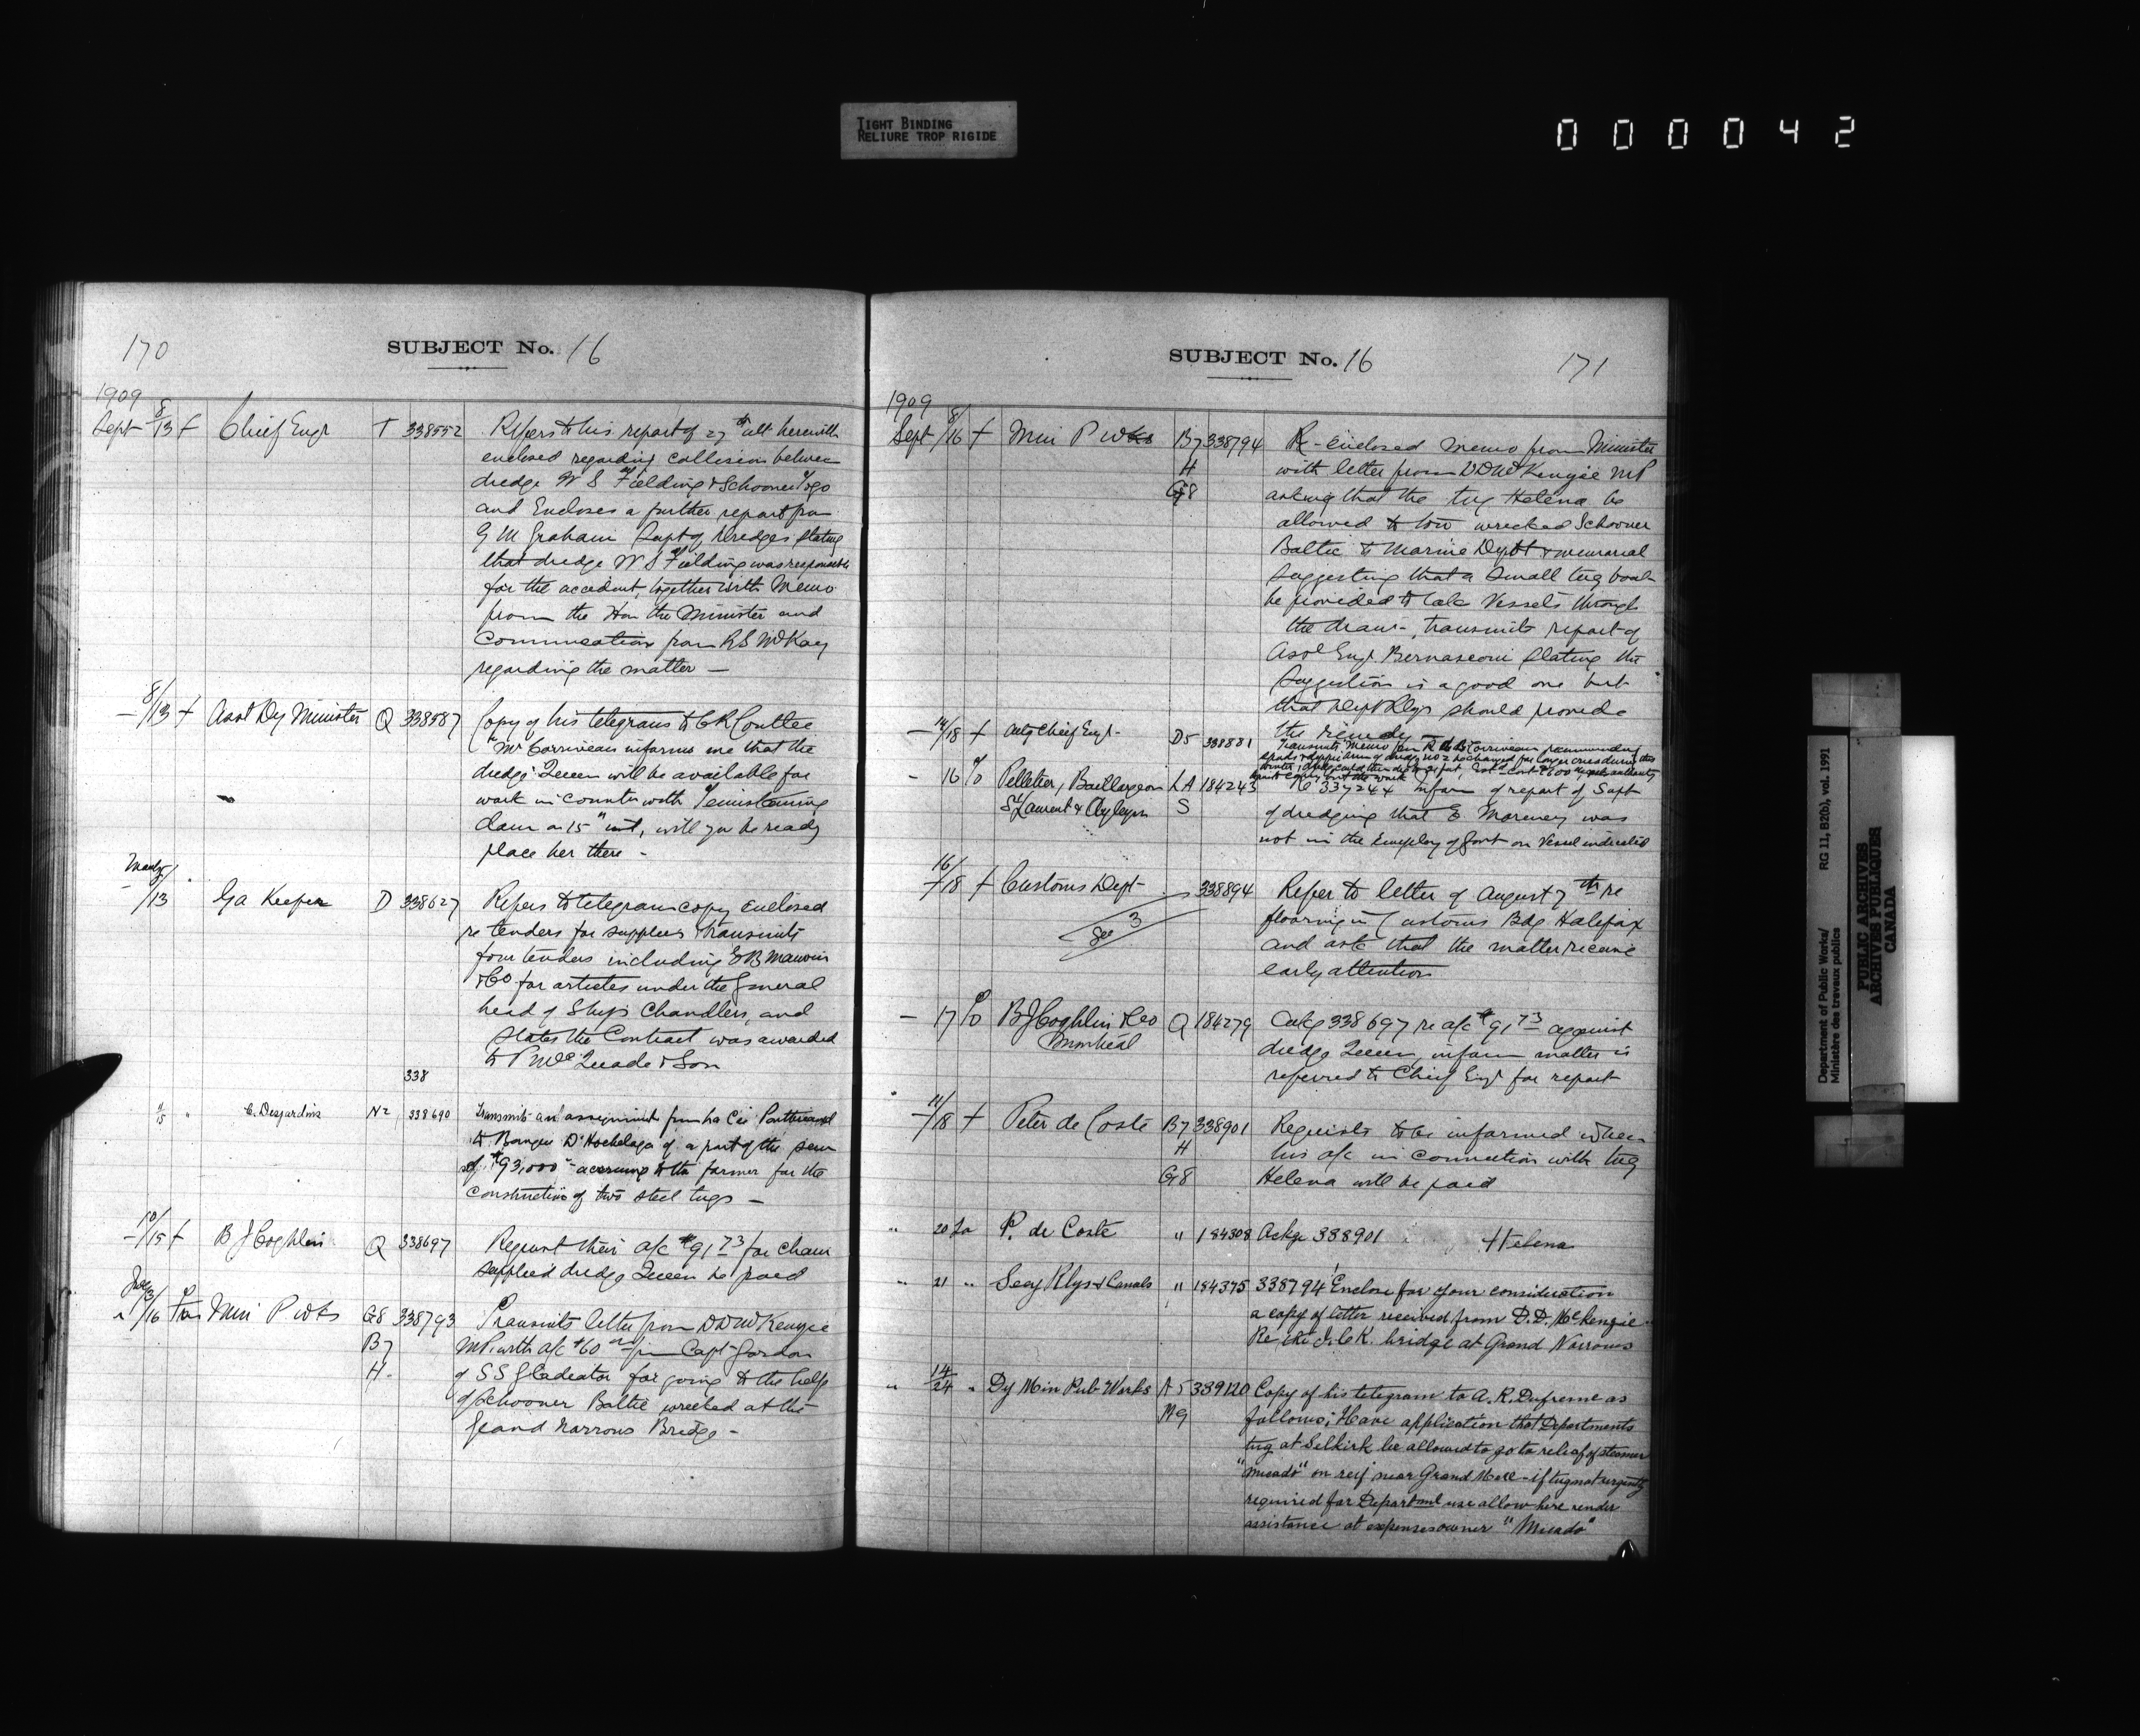 TIGHT BINDING
RELIURE TROP RIGIDE
000042
170
SUBJECT No. 16
1909
Sept 8/13 + Chief Engr T 338552 Refers to his report of 27th ult herewith
enclosed regarding collision between
dredge W S Fielding & Schooner Togo
and Encloses a further report from
G M Graham Supt of Dredges stating
that dredge W S Fielding was responsible
for the accident, together with Memo
from the Hon the Minister and
Communication from R S McKay
regarding the matter —
— 8/13 + Asst Dy Minister Q 338587 Copy of his telegram to C R Coutlee
"Mr Corriveau informs me that the
dredge Queen will be available for
work in connection with Temiskaming
dam on 15th inst, will you be ready
place her there -
/13 Ga Keefer D 338627 Refers to telegram copy enclosed
re tenders for supplies & transmits
four tenders including E B Marvin
& Co for articles under the general
head of Ships Chandlers, and
States the Contract was awarded
to P McQuade & Son
338
11/15 " C. Desjardins N2 338690 Transmits an assignment from La Cie Pontbriand
to Banque D'Hochelaga of a part of the sum
of $93,000 - accruing to the former for the
construction of two steel tugs —
— 10/15 + B J Coghlin Q 338697 Request their a/c $91 73 for chain
supplied dredge Queen be paid
" /16 Min P Wks G8 338793 Transmits letter from D D McKenzie
B7 MP. with a/c $60 from Capt Gordon
H. of S S Gladiator for going to the help
of Schooner Baltic wrecked at the
Grand Narrows Bridge -
SUBJECT No. 16
171
1909
Sept 8/16 + Min P Wks B7 338794 Re-enclosed memo from Minister
H with letter from D D McKenzie MP
G8 asking that the tug Helena be
allowed to tow wrecked Schooner
Baltic to Marine Dept & memorial
suggesting that a small tug boat
be provided to take Vessels through
the draw -, transmits report of
Asst Engr. Bernasconi stating the
Suggestion is a good one but
that Dept Rlys should provide
the remedy —
— 14/18 + Actg Chief Engr - D5 338881 Transmits Memo from
- 16 Pelletier, Baillargeon LA 184243 Re 337244 Inform of report of Supt
St Laurent & S of dredging that E Marcney was
not in the Employ of Govt on Vessel indicated
16/18 + Customs Dept - 338894 Refer to letter of August 7th re
See 3
flooring in Customs Bdg Halifax
and ask that the matter receive
early attention
— 17 B J Coghlin & Co Q 184279 Ackg 338697 re a/c $91 73 against
Montreal dredge Queen, inform matter is
referred to Chief Engr for report
— 11/18 + Peter de Coste B7 338901 Requests to be informed when
H his a/c in connection with tug
G8 Helena will be paid
" 20 P. de Coste " 184308 Ackge 338901 Helena
" 21 " Secy Rlys & Canals " 184375 338794 Enclose for your consideration
a copy of letter received from D.D. McKenzie
Re the I.C.R. bridge at Grand Narrows
" 14/24 " Dy Min Pub Works A5 339120 Copy of his telegram to A. R. Dufresne as
M9 follows; Have application that Departments
tug at Selkirk be allowed to go to relief of steamer
"Micado" on reef near Grand - if tug not urgently
required for Department use allow here render
assistance at expenses owner "Micado"
Department of Public Works/
Ministère des travaux publics
RG 11, B2(b), vol. 1991
PUBLIC ARCHIVES
ARCHIVES PUBLIQUES
CANADA